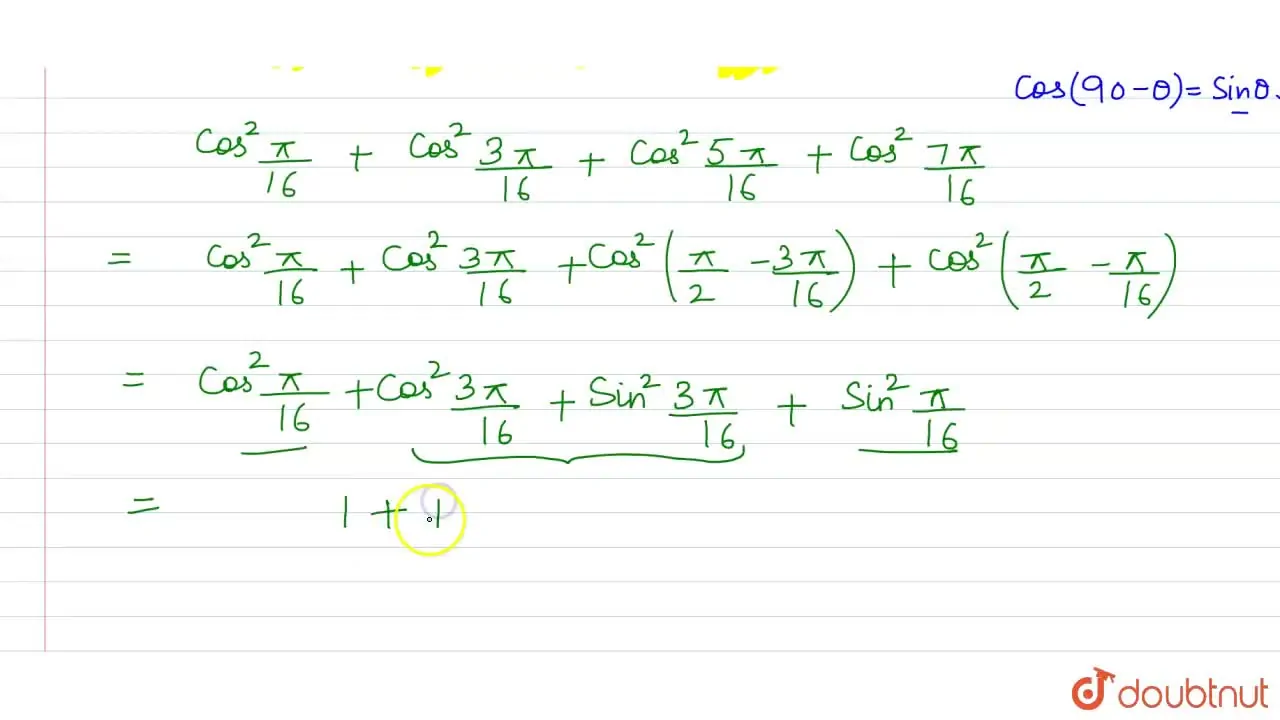 Cos(90-θ)= Sinθ.
Cos² π/16 + Cos² 3π/16 + Cos² 5π/16 + Cos² 7π/16
= Cos² π/16 + Cos² 3π/16 + Cos² (π/2 - 3π/16) + Cos² (π/2 - π/16)
= Cos² π/16 + Cos² 3π/16 + Sin² 3π/16 + Sin² π/16
= 1 + 1
doubtnut